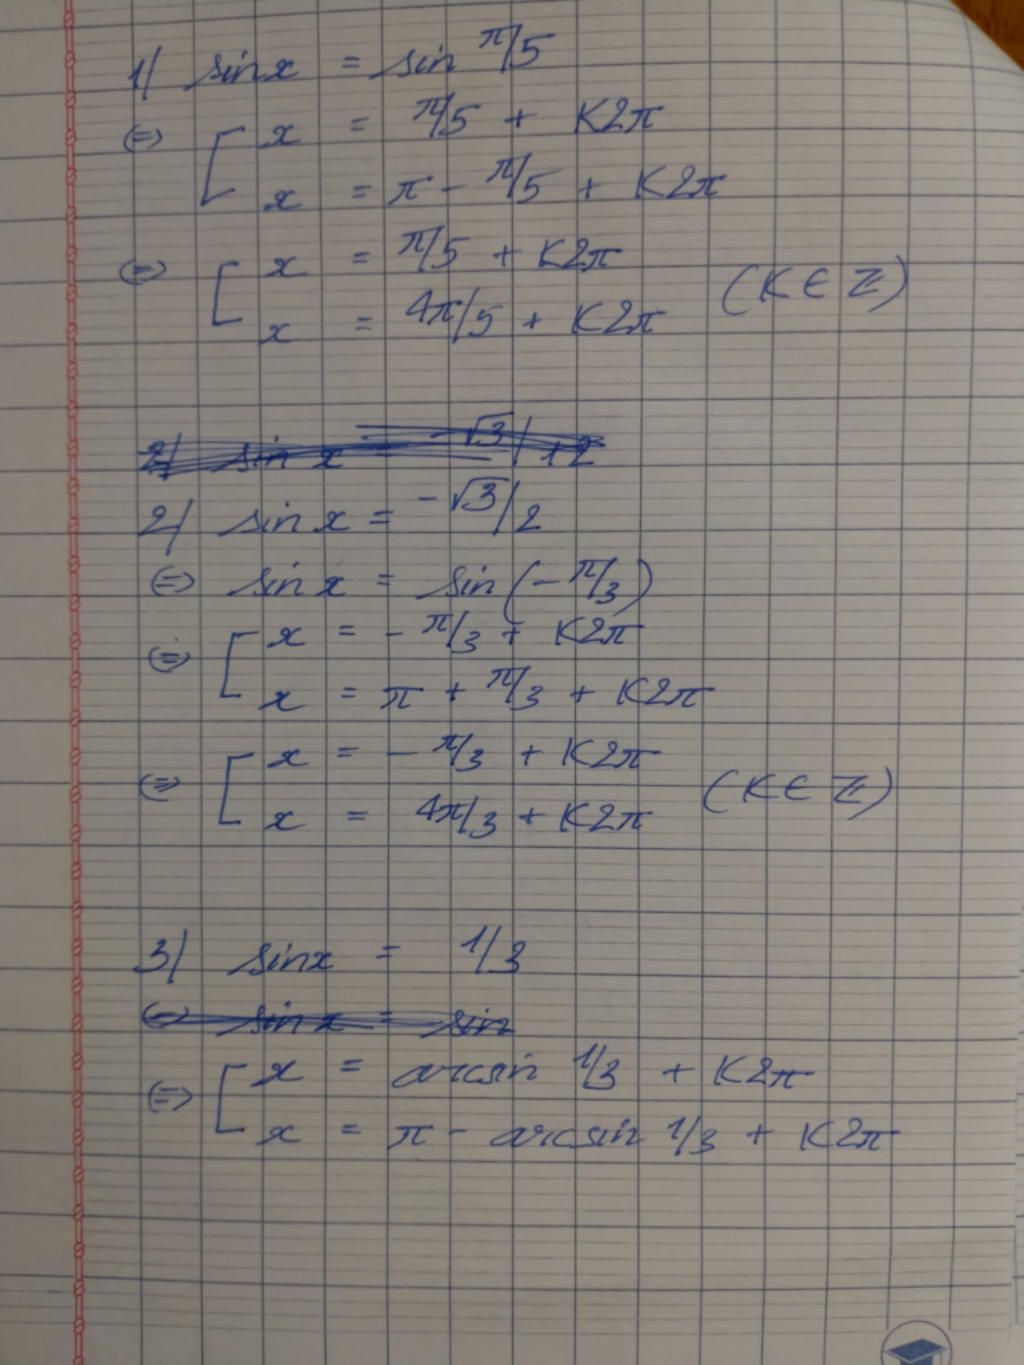 1/ sinx = sin π/5
⇔ [ x = π/5 + K2π
x = π - π/5 + K2π
⇔ [ x = π/5 + K2π
x = 4π/5 + K2π (K ∈ Z)
2/ sin x = -√3/+2
2/ sin x = -√3/2
⇔ sin x = sin(-π/3)
⇔ [ x = -π/3 + K2π
x = π + π/3 + K2π
⇔ [ x = -π/3 + K2π
x = 4π/3 + K2π (K ∈ Z)
3/ sinx = 1/3
⇔ sin x = sin
⇔ [ x = arcsin 1/3 + K2π
x = π - arcsin 1/3 + K2π